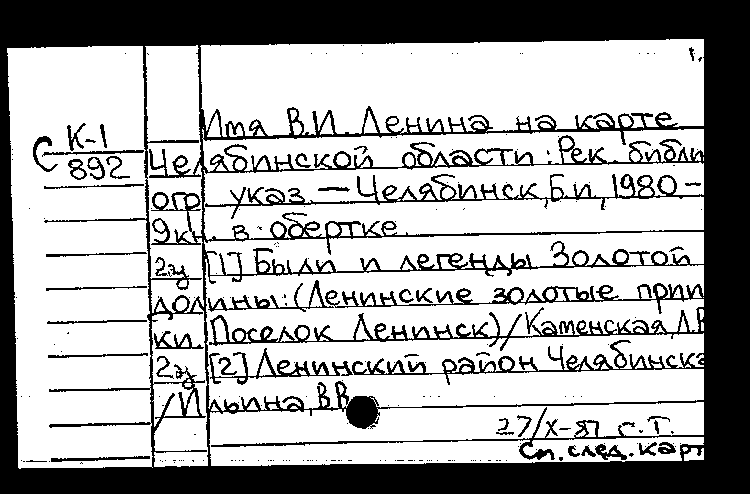 1.
Имя В.И. Ленина на карте
С К-1
892
Челябинской области: Рек. библи
огр. указ. — Челябинск, Б.и, 1980. —
9 кн. в обертке.
2э [1] Были и легенды Золотой
долины: (Ленинские золотые приис
ки. Поселок Ленинск) / Каменская, Л.В
2э [2] Ленинский район Челябинска
/Ильина, В.В.
27/X-81 с.т.
См. след. карт